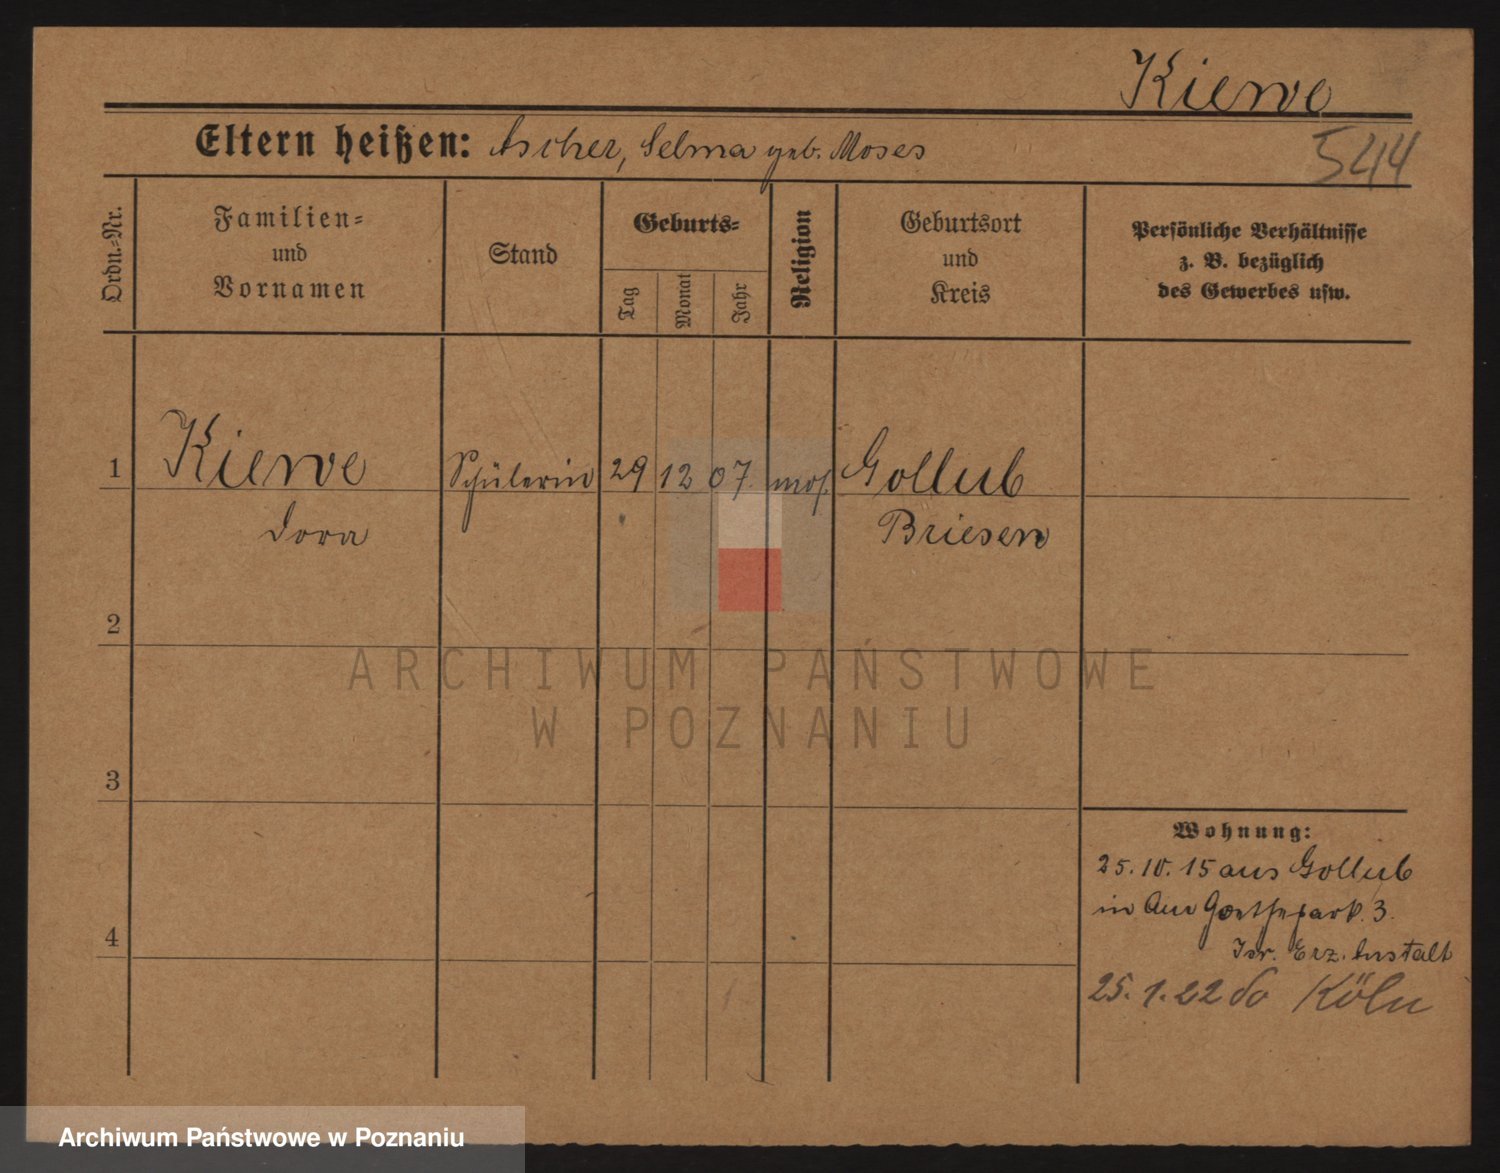 Kiewe
Eltern heißen: Ascher, Selma geb. Moses
544
Ordn.=Nr.
Familien=
und
Vornamen
Stand
Geburts=
Tag
Monat
Jahr
Religion
Geburtsort
und
Kreis
Persönliche Verhältnisse
z. B. bezüglich
des Gewerbes usw.
1 Kiewe Schülerin 29 12 07. mos. Gollub
Dora Briesen
2
3
4
Wohnung:
25.10.15 aus Gollub
in Am Goethepark 3.
Isr. Erz. Anstalt
25.1.22 Köln
ARCHIWUM PAŃSTWOWE
W POZNANIU
Archiwum Państwowe w Poznaniu